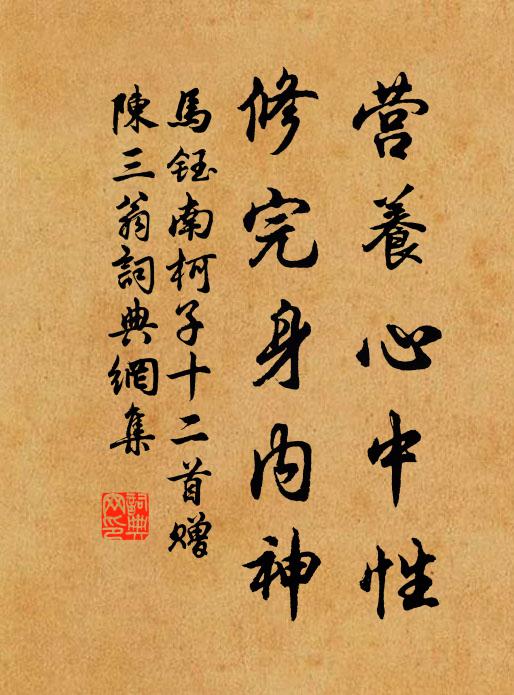 营養心中性
修完身内神
馬鈺南柯子十二首赠
陳三翁詞典網集
詞典网印